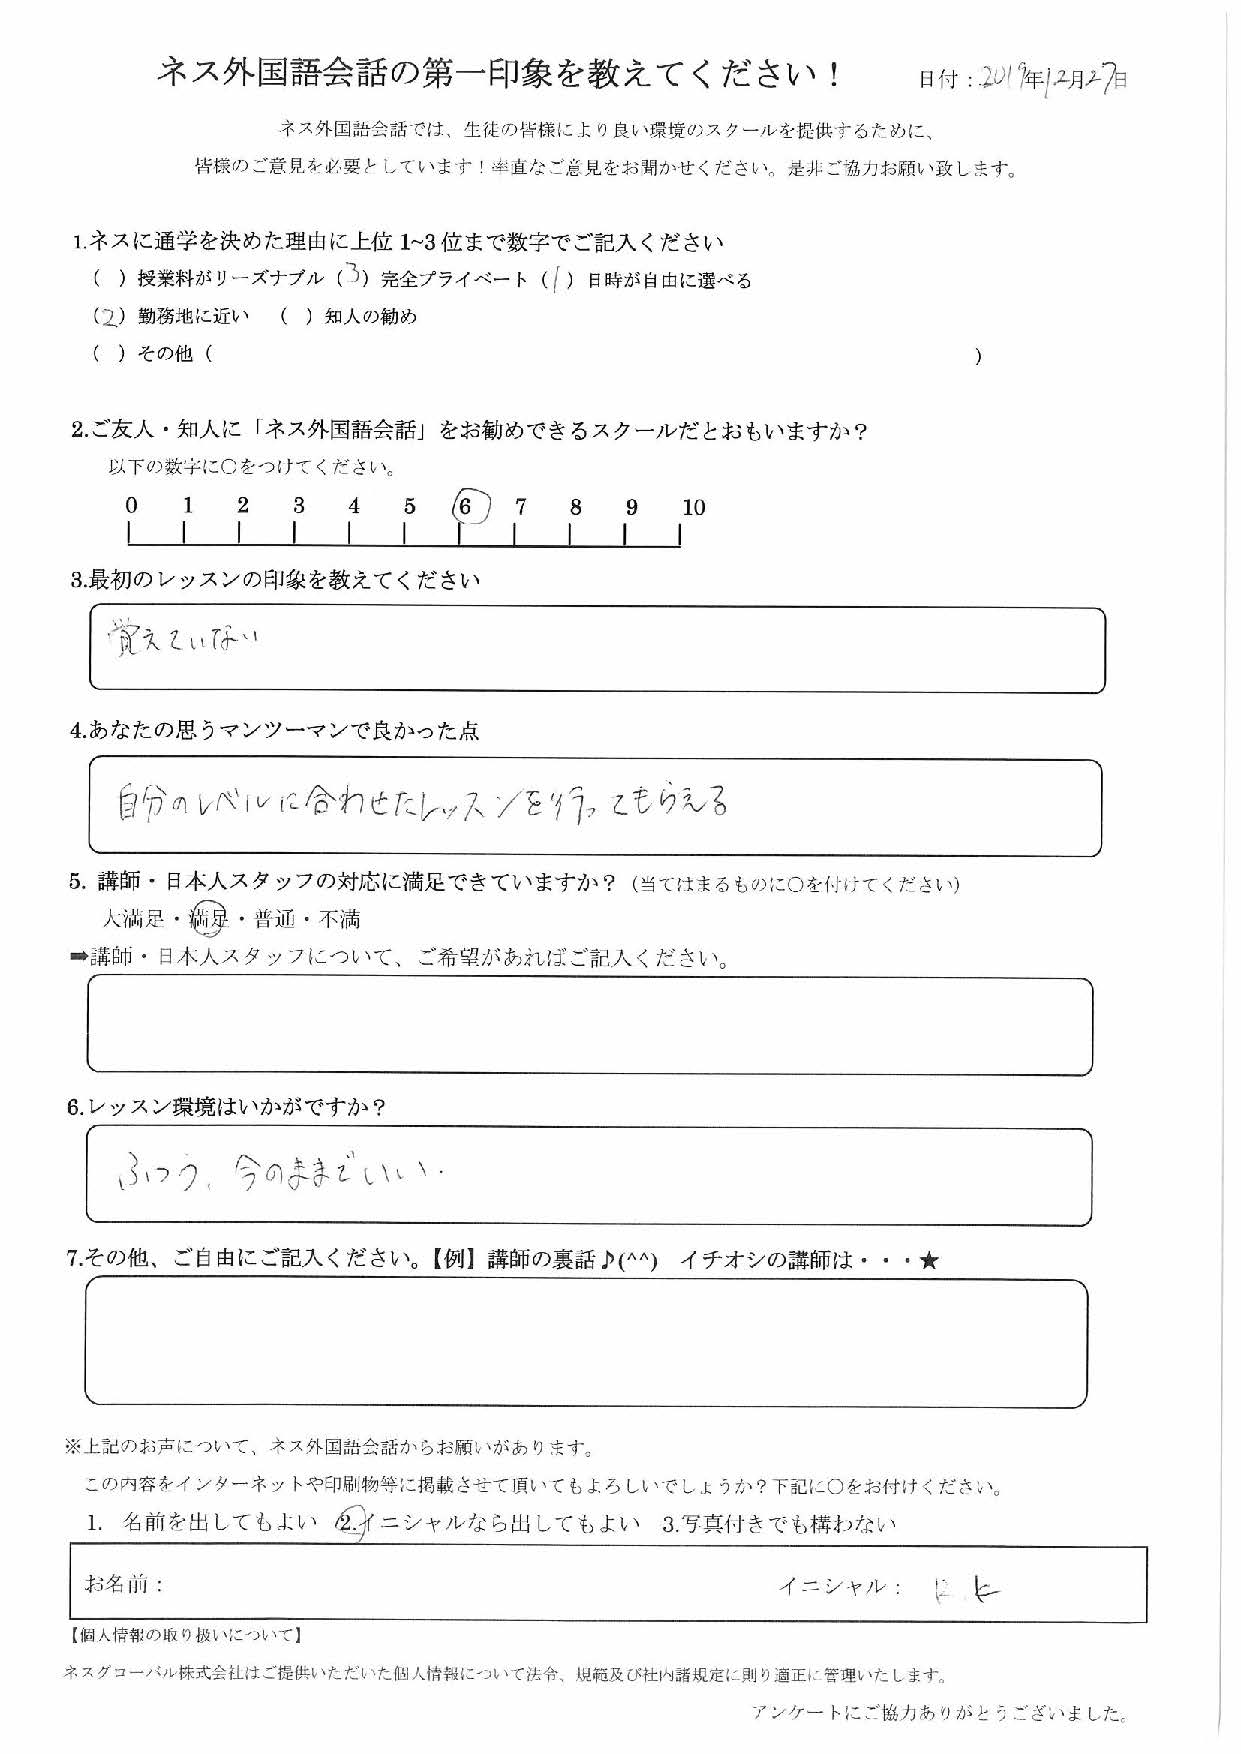 ネス外国語会話の第一印象を教えてください！ 日付：2019年12月27日
ネス外国語会話では、生徒の皆様により良い環境のスクールを提供するために、
皆様のご意見を必要としています！率直なご意見をお聞かせください。是非ご協力お願い致します。
1.ネスに通学を決めた理由に上位 1~3 位まで数字でご記入ください
（ ）授業料がリーズナブル（3）完全プライベート（1）日時が自由に選べる
（2）勤務地に近い （ ）知人の勧め
（ ）その他（ ）
2.ご友人・知人に「ネス外国語会話」をお勧めできるスクールだとおもいますか？
以下の数字に○をつけてください。
0 1 2 3 4 5 6 7 8 9 10
3.最初のレッスンの印象を教えてください
覚えていない
4.あなたの思うマンツーマンで良かった点
自分のレベルに合わせたレッスンを行ってもらえる
5. 講師・日本人スタッフの対応に満足できていますか？（当てはまるものに○を付けてください）
大満足・満足・普通・不満
➡講師・日本人スタッフについて、ご希望があればご記入ください。
6.レッスン環境はいかがですか？
ふつう、今のままでいい．
7.その他、ご自由にご記入ください。【例】講師の裏話♪(^^) イチオシの講師は・・・★
※上記のお声について、ネス外国語会話からお願いがあります。
この内容をインターネットや印刷物等に掲載させて頂いてもよろしいでしょうか？下記に○をお付けください。
1. 名前を出してもよい 2.イニシャルなら出してもよい 3.写真付きでも構わない
お名前： イニシャル：
【個人情報の取り扱いについて】
ネスグローバル株式会社はご提供いただいた個人情報について法令、規範及び社内諸規定に則り適正に管理いたします。
アンケートにご協力ありがとうございました。